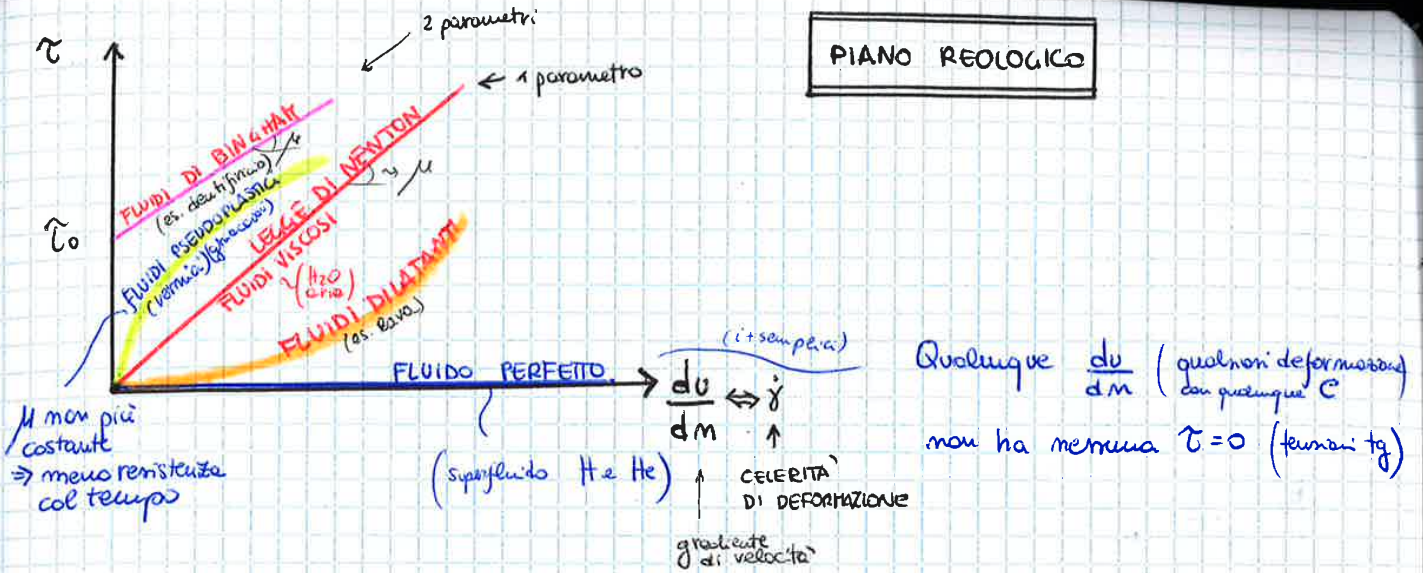 2 parametri
PIANO REOLOGICO
τ
← 1 parametro
FLUIDI DI BINGHAM
μ
(es. dentifricio)
FLUIDI PSEUDOPLASTICI
(vernici)
LEGGE DI NEWTON
μ
FLUIDI VISCOSI
(H2O
aria)
τ0
FLUIDI DILATANTI
(es. lava)
FLUIDO PERFETTO
(i + semplici)
du
dn
⇔ γ̇
Qualunque du/dn (qualsiasi deformazione
con qualunque C)
non ha nessuna τ=0 (tensioni tg)
μ non più
costante
⇒ meno resistenza
col tempo
(superfluido H e He)
CELERITA'
DI DEFORMAZIONE
gradiente
di velocità